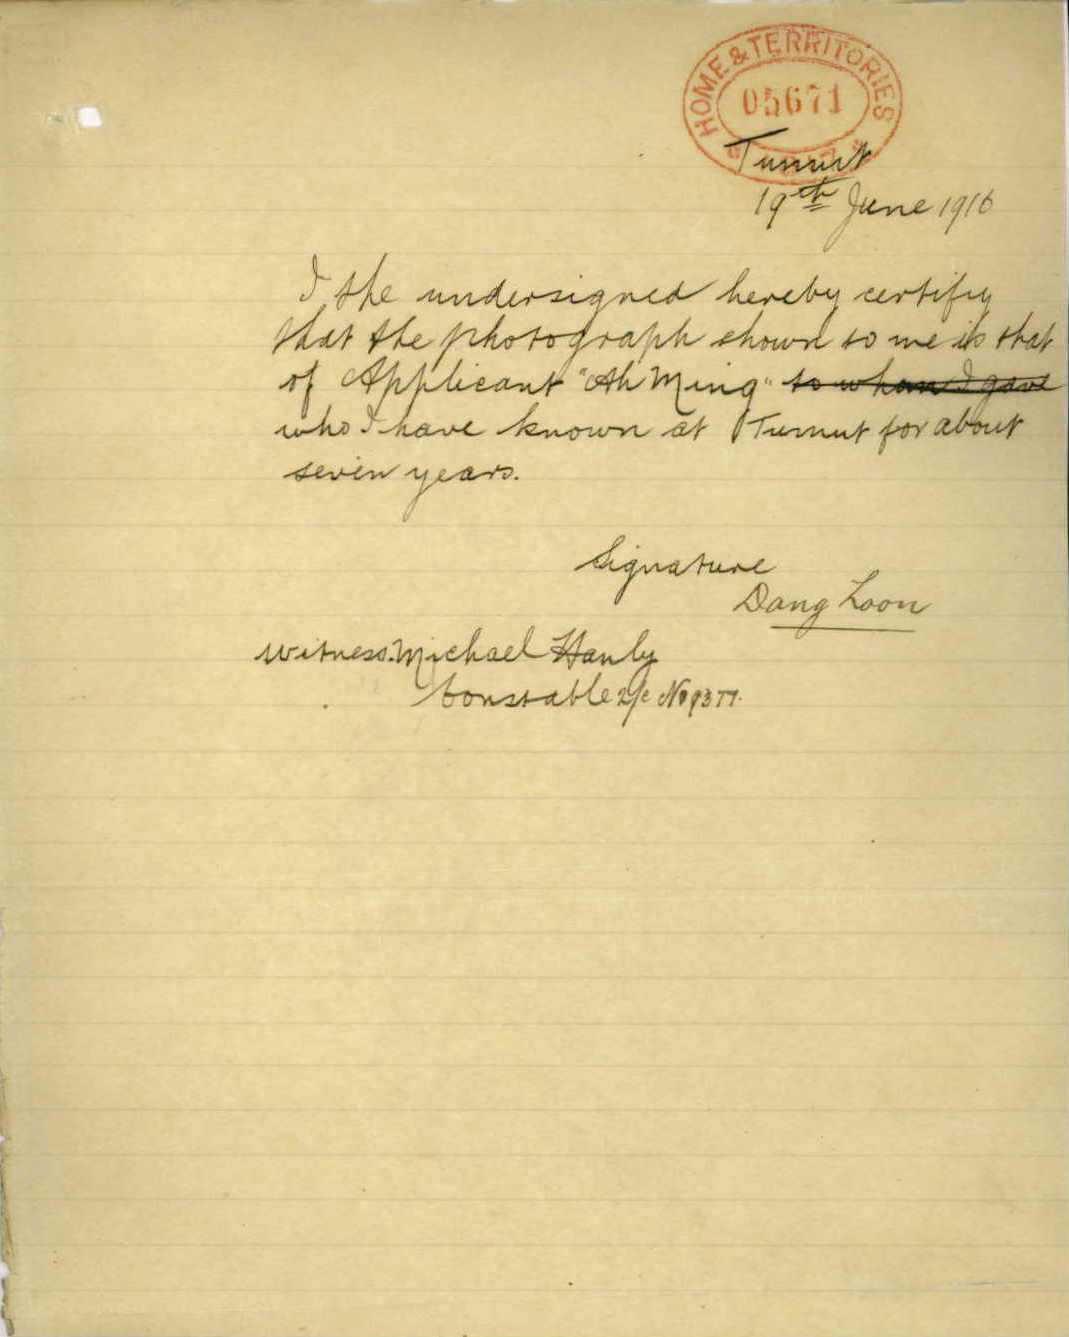 HOME & TERRITORIES
05671
Tumut
19th June 1916
I the undersigned hereby certify
that the photograph shown to me is that
of Applicant "Ah Ming" to whom I gave
who I have known at Tumut for about
seven years.
Signature
Dang Loon
Witness. Michael Hanly
Constable 2/c No 9377.